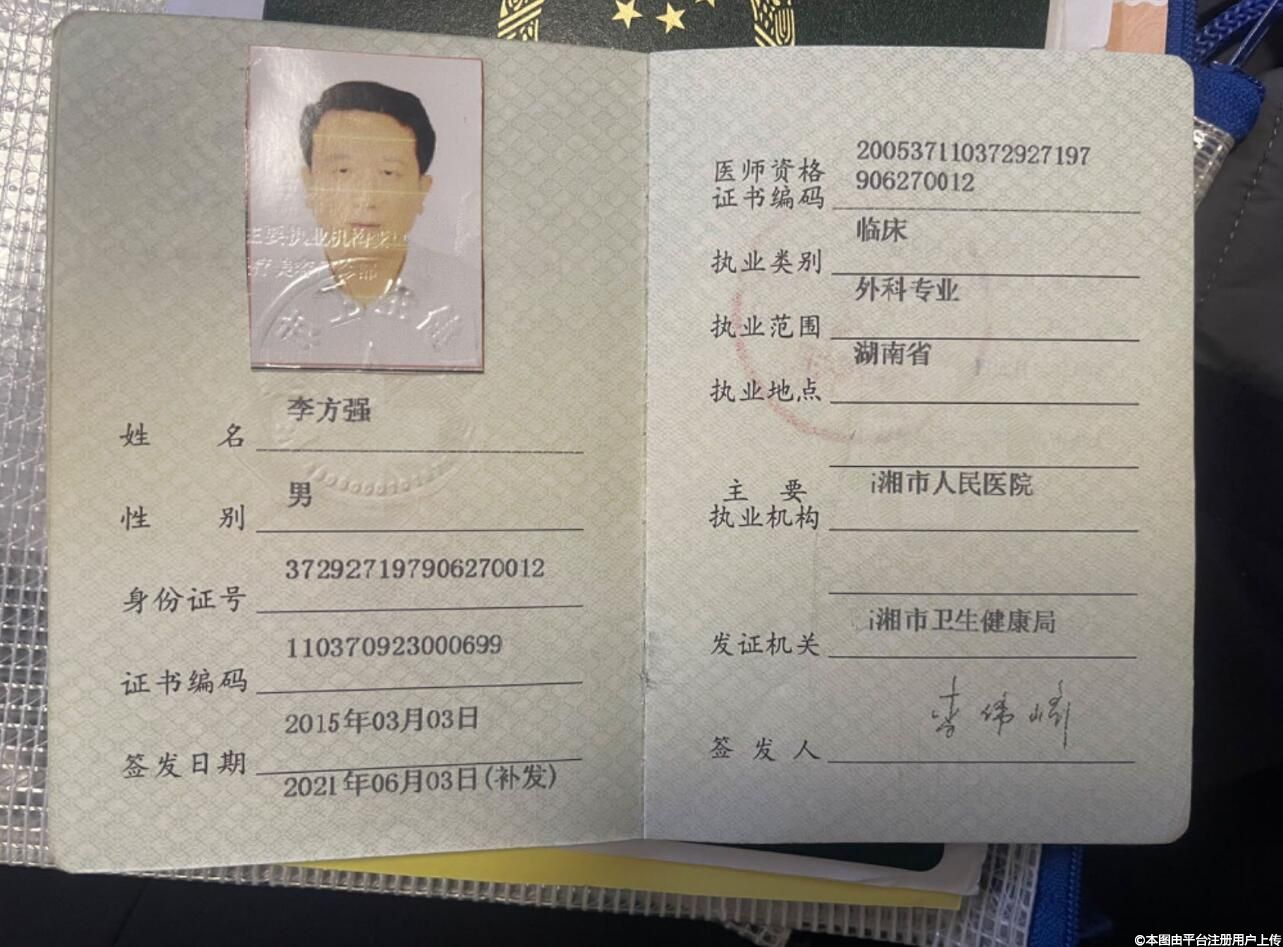 李方强
姓 名
男
性 别
372927197906270012
身份证号
110370923000699
证书编码
2015年03月03日
签发日期
2021年06月03日(补发)
200537110372927197
医师资格
906270012
证书编码
临床
执业类别
外科专业
执业范围
湖南省
执业地点
湘市人民医院
主 要
执业机构
湘市卫生健康局
发证机关
签 发 人
©本图由平台注册用户上传